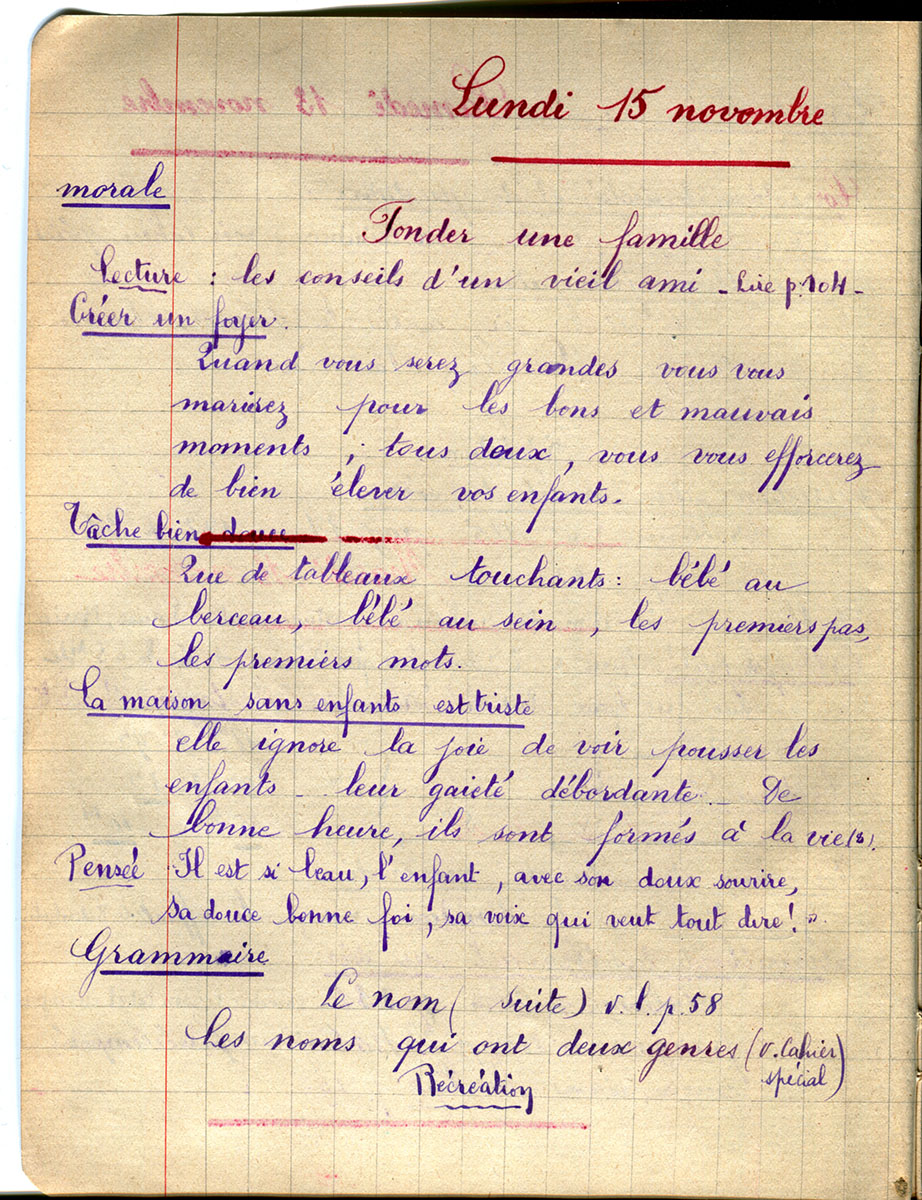 Lundi 15 novembre
morale
Fonder une famille
Lecture : les conseils d'un vieil ami - Lire p.104 -
Créer un foyer.
Quand vous serez grandes vous vous
marierez pour les bons et mauvais
moments ; tous deux, vous vous efforcerez
de bien élever vos enfants.
Tâche bien douce
Que de tableaux touchants : bébé au
berceau, bébé au sein, les premiers pas,
les premiers mots.
La maison sans enfants est triste
elle ignore la joie de voir pousser les
enfants - leur gaieté débordante - De
bonne heure, ils sont formés à la vie
Pensée Il est si beau, l'enfant, avec son doux sourire,
sa douce bonne foi, sa voix qui veut tout dire! "
Grammaire
Le nom ( suite ) v. l. p. 58
Les noms qui ont deux genres (v. Cahier
spécial)
Récréation